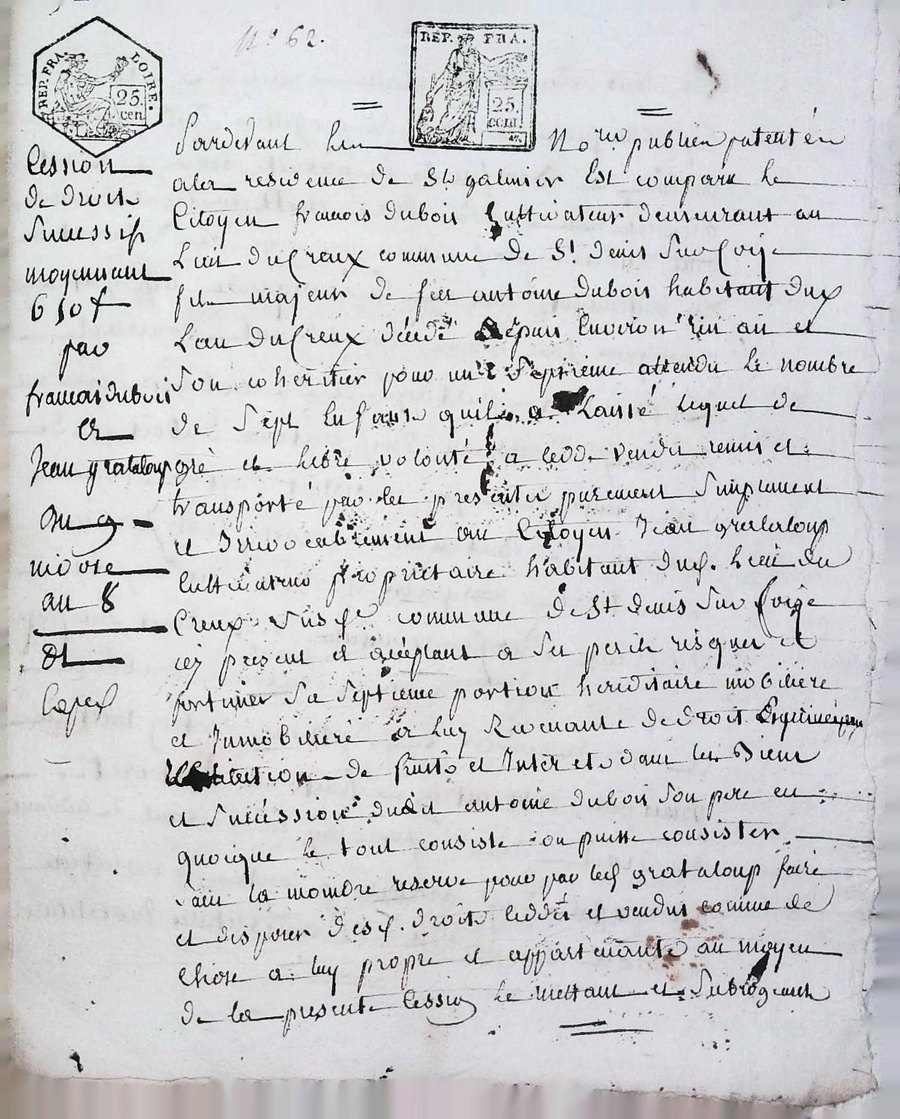 N° 62.
REP. FRA. LOIRE.
25.
cen.
REP. FRA.
25
cent
Cession
de droits
Successifs
moyennant
650 f
par
francois dubois
et
Jean grataloup
Du 9
nivose
an 8
Dt
Cape
Pardevant No.re public patenté en
a la residence de St galmier Est comparu le
Citoyen francois dubois Cultivateur demeurant au
Lieu du Creux commune de St. denis Sur Coise
fils majeur de feu antoine dubois habitant dud
Lieu du Creux décédé depuis Environ un an et
Son coheritier pour un Septieme attendu le nombre
de Sept Enfans quil a Laissé Lequel de
gré et libre volonté a cedé vendu remis et
transporté par les presentes purement Simplement
et Irrevocablement au Citoyen Jean grataloup
Cultivateur propriétaire habitant dud. Lieu du
Creux Susd. commune de St denis Sur Coise
icy present et acceptant a Ses perils risques et
fortunes Sa Septieme portion hereditaire mobiliere
et Immobiliere a Luy Revenante de droit
restitution de fruits et Interets dans les Biens
et Succession dudit antoine dubois Son pere en
quoique le tout consiste ou puisse consister
Sans la moindre reserve pour par led grataloup faire
et disposer desd. droits cedés et vendus comme de
Chose a luy propre et appartenante au moyen
de la presente Cession le mettant et Subrogeant